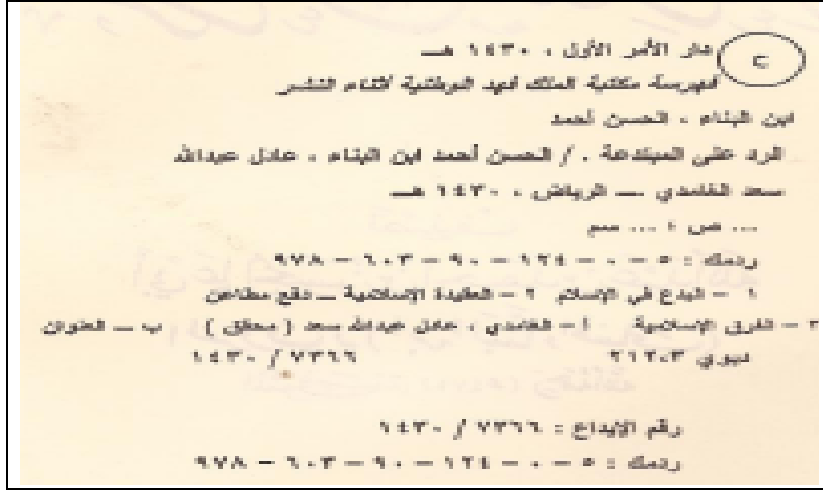 ح دار الأمر الأول ، ١٤٣٠ هـــ
فهرسة مكتبة الملك فهد الوطنية أثناء النشر
ابن البناء ، الحسن أحمد
الرد على المبتدعة . / الحسن أحمد ابن البناء ، عادل عبدالله
سعد الغامدي ـــ الرياض ، ١٤٣٠ هـــ
... ص ؛ ... سم
ردمك : ٥ – ٠ – ١٢٤ – ٩٠ – ٦٠٣ – ٩٧٨
١ – البدع في الإسلام ٢ – العقيدة الإسلامية ـــ دفع مطاعن
٣ – الفرق الإسلامية أ – الغامدي ، عادل عبدالله سعد ( محقق ) ب ـــ العنوان
ديوي ٢١٢،٣ ٧٣٦٦ / ١٤٣٠
رقم الإيداع : ٧٣٦٦ / ١٤٣٠
ردمك : ٥ – ٠ – ١٢٤ – ٩٠ – ٦٠٣ – ٩٧٨